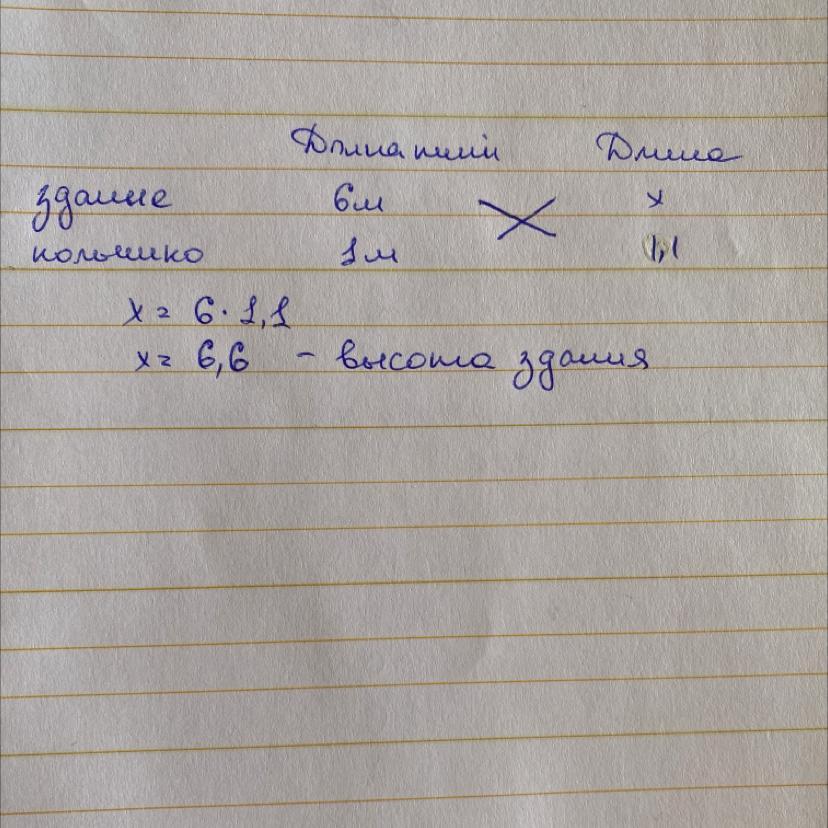 Длина тени Длина
здание 6м х
колышко 1м 1,1
х = 6 · 1,1
х = 6,6 – высота здания